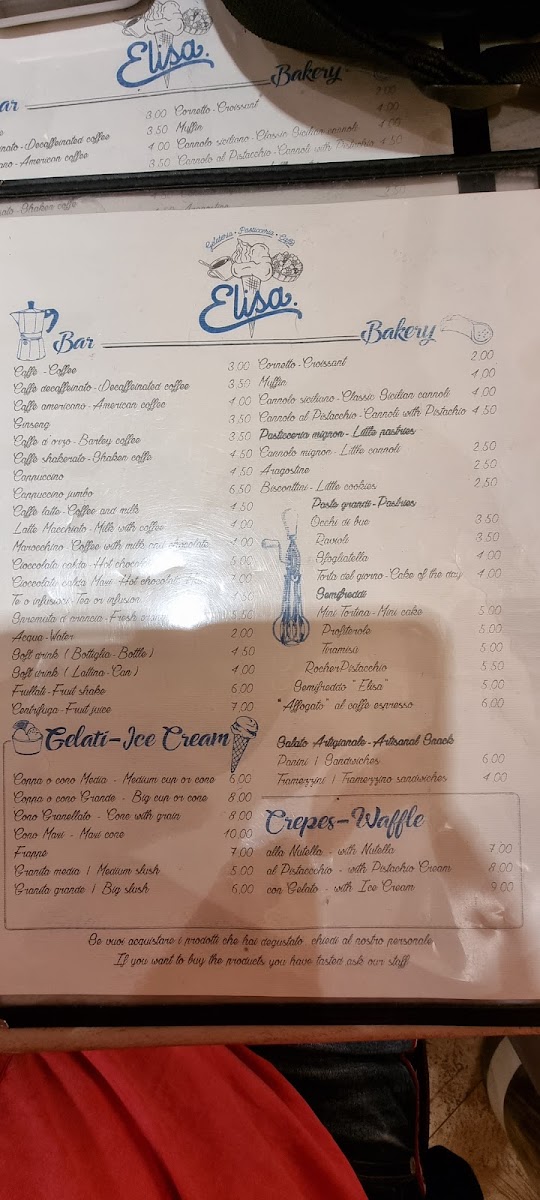 Elisa.
Bakery
ar
3.00 Cornetto-Croissant 2.00
3.50 Muffin 4.00
nato-Decaffeinated coffee 4.00 Cannolo siciliano-Classic Sicilian cannoli 4.00
ano-American coffee 3.50 Cannolo al Pistacchio-Cannoli with Pistachio 4.50
Gelateria • Pasticceria • Caffè
Elisa.
Bar
Caffè - Coffee 3.00
Caffè decaffeinato - Decaffeinated coffee 3.50
Caffè americano - American coffee 4.00
Ginseng 3.50
Caffè d'orzo - Barley coffee 3.50
Caffè shakerato - Shaken caffè 4.50
Cappuccino 4.50
Cappuccino jumbo 6.50
Caffè latte - Coffee and milk 4.50
Latte Macchiato - Milk with coffee 4.00
Marocchino - Coffee with milk and chocolate 4.00
Cioccolata calda - Hot chocolate 5.00
Cioccolata calda Maxi - Hot chocolate 7.00
Te o infusioni - Tea or infusion 4.50
Spremuta d'arancia - Fresh 5.50
Acqua - Water 2.00
Soft drink ( Bottiglia - Bottle ) 4.50
Soft drink ( Lattina - Can ) 4.00
Frullati - Fruit shake 6.00
Centrifuga - Fruit juice 7.00
Bakery
Cornetto - Croissant 2.00
Muffin 4.00
Cannolo siciliano - Classic Sicilian cannoli 4.00
Cannolo al Pistacchio - Cannoli with Pistachio 4.50
Pasticceria mignon - Little pastries
Cannolo mignon - Little cannoli 2.50
Aragostine 2.50
Biscottini - Little cookies 2.50
Paste grandi - Pastries
Occhi di bue 3.50
Raviole 3.50
Sfogliatella 4.00
Torta del giorno - Cake of the day 4.00
Semifreddi
Mini Tortina - Mini cake 5.00
Profiterole 5.00
Tiramisù 5.00
RocherPistacchio 5.50
Semifreddo "Elisa" 5.00
"Affogato" al caffè espresso 6.00
Salato Artigianale - Artisanal Snack
Panini | Sandwiches 6.00
Tramezzini | Tramezzino sandwiches 4.00
Gelati-Ice Cream
Coppa o cono Media - Medium cup or cone 6.00
Coppa o cono Grande - Big cup or cone 8.00
Cono Granellato - Cone with grain 8.00
Cono Maxi - Maxi cone 10.00
Frappè 7.00
Granita media | Medium slush 5.00
Granita grande | Big slush 6.00
Crepes-Waffle
alla Nutella - with Nutella 7.00
al Pistacchio - with Pistachio Cream 8.00
con Gelato - with Ice Cream 9.00
Se vuoi acquistare i prodotti che hai degustato, chiedi al nostro personale
If you want to buy the products you have tasted ask our staff